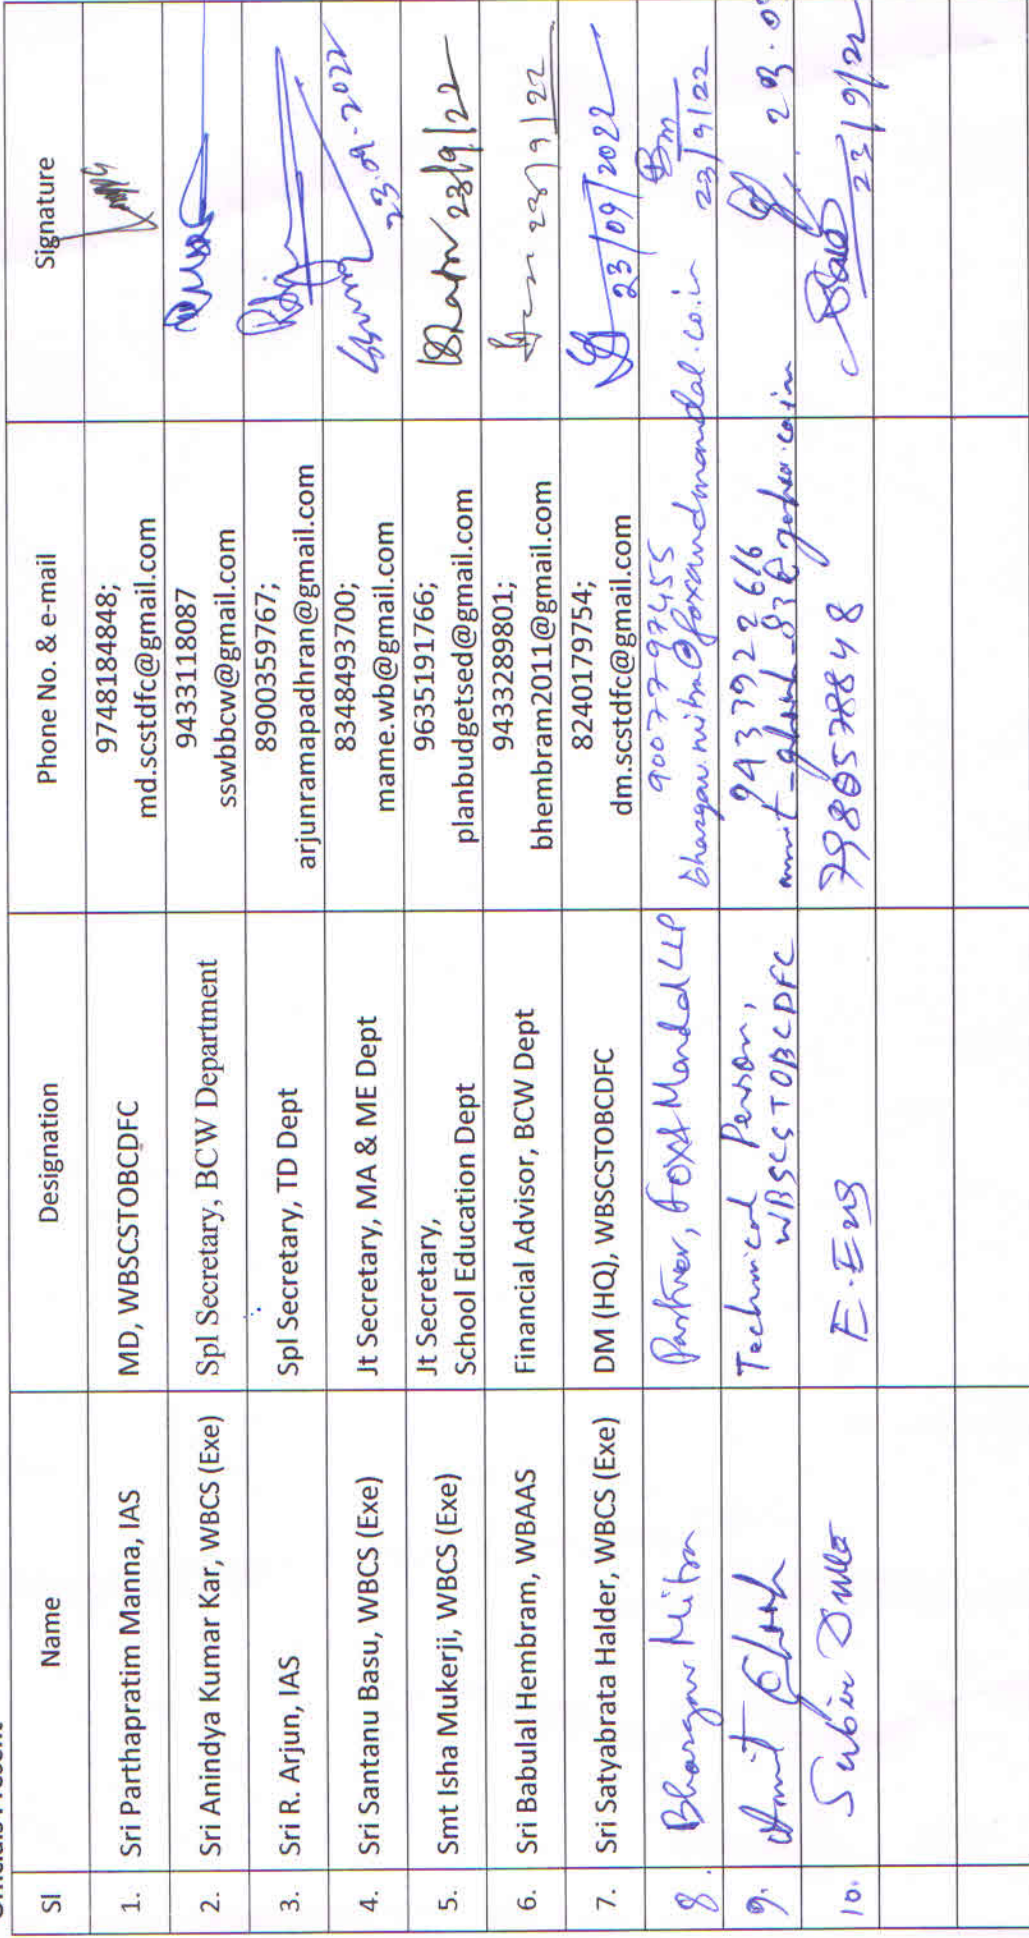 Sl Name Designation Phone No. & e-mail Signature
1. Sri Parthapratim Manna, IAS MD, WBSCSTOBCDFC 9748184848;
md.scstdfc@gmail.com
2. Sri Anindya Kumar Kar, WBCS (Exe) Spl Secretary, BCW Department 9433118087
sswbbcw@gmail.com
3. Sri R. Arjun, IAS Spl Secretary, TD Dept 8900359767;
arjunramapadhran@gmail.com
4. Sri Santanu Basu, WBCS (Exe) Jt Secretary, MA & ME Dept 8348493700;
mame.wb@gmail.com
23.09.2022
5. Smt Isha Mukerji, WBCS (Exe) Jt Secretary,
School Education Dept 9635191766;
planbudgetsed@gmail.com 23/9/22
6. Sri Babulal Hembram, WBAAS Financial Advisor, BCW Dept 9433289801;
bhembram2011@gmail.com 23/9/22
7. Sri Satyabrata Halder, WBCS (Exe) DM (HQ), WBSCSTOBCDFC 8240179754;
dm.scstdfc@gmail.com 23/09/2022
8. Bhargav Mitra Partner, Fox & Mandal LLP 9007797455
bhargav.mitra@foxandmandal.co.in Bm
23/9/22
9. Amit Ghosh Technical Person,
WBSCSTOBCDFC 9433922616
10. Subir Dutta E.Eng 7980578848
23/9/22